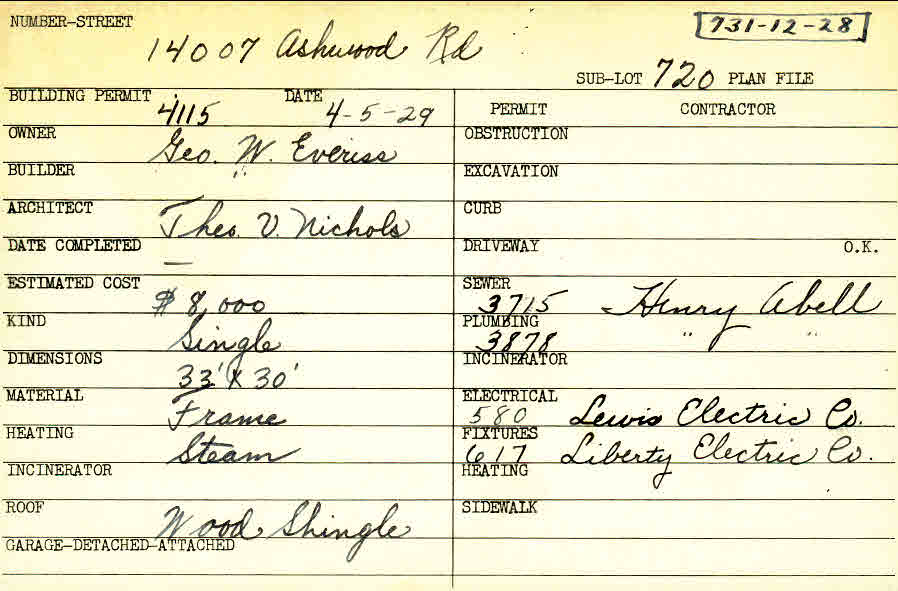 NUMBER-STREET
731-12-28
14007 Ashwood Rd
SUB-LOT 720 PLAN FILE
BUILDING PERMIT 4115 DATE 4-5-29
OWNER Geo. W. Everiss
BUILDER "
ARCHITECT Theo. V. Nichols
DATE COMPLETED —
ESTIMATED COST $8,000
KIND Single
DIMENSIONS 33' X 30'
MATERIAL Frame
HEATING Steam
INCINERATOR
ROOF Wood Shingle
GARAGE-DETACHED-ATTACHED
PERMIT CONTRACTOR
OBSTRUCTION
EXCAVATION
CURB
DRIVEWAY O.K.
SEWER 3715 Henry Abell
PLUMBING 3878 " "
INCINERATOR
ELECTRICAL 580 Lewis Electric Co.
FIXTURES 617 Liberty Electric Co.
HEATING
SIDEWALK